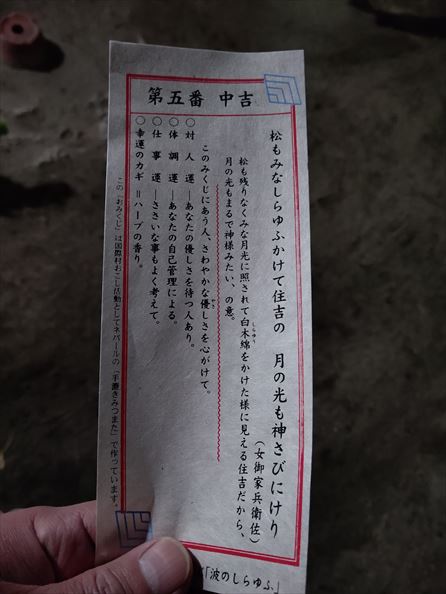 第五番 中吉
松もみなしらゆふかけて住吉の 月の光も神さびにけり
(女御家兵衛佐)
松も残りなくみな月光に照されて白木綿をかけた様に見える住吉だから、
しらゆう
月の光もまるで神様みたい、の意。
このみくじにあう人、さわやかな優しさを心がけて。
やさ
○対人運―あなたの優しさを待つ人あり。
○体調運―あなたの自己管理による。
○仕事運―ささいな事もよく考えて。
○幸運のカギ=ハーブの香り。
この「おみくじ」は国際村おこし活動としてネパールの「手漉きみつまた」で作っています。
「波のしらゆふ」